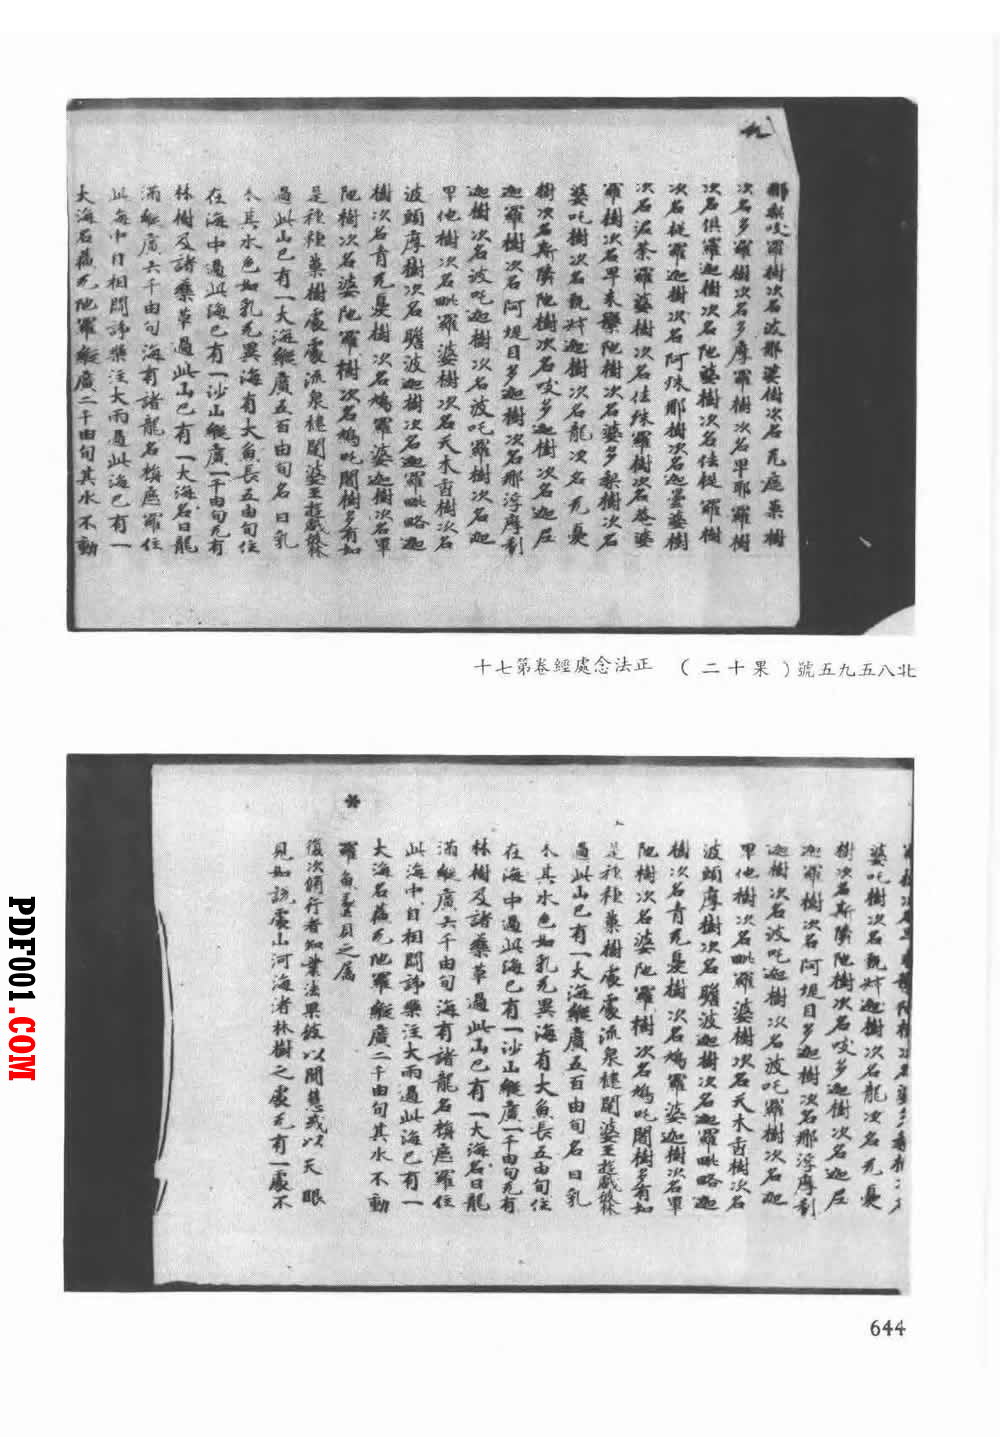 那梨咬羅樹次名波那婆樹次名無遮菓樹
次名多羅樹次名多摩羅樹次名畢耶羅樹
次名俱羅迦樹次名陁婆樹次名佉提羅樹
次名提羅迦樹次名阿殊那樹次名迦曇婆樹
次名泥荼羅婆樹次名佉殊羅樹次名菴婆
羅樹次名畢末 陁樹次名婆多梨樹次名
婆吒樹次名 迦樹次名龍次名无憂
樹次名斯隣陁樹次名咬多迦樹次名迦尼
迦羅樹次名阿提目多迦樹次名那浮摩利
迦樹次名波吒迦樹次名波吒羅樹次名迦
畢他樹次名毗羅婆樹次名天木香樹次名
波頭摩樹次名瞻波迦樹次名迦羅毗略迦
樹次名青无憂樹次名鳩羅婆迦樹次名軍
陁樹次名婆陁羅樹次名鳩吒闍樹多有如
是種種菓樹處處流泉揵闥婆王遊戲
過此山已有一大海縱廣五百由旬名曰乳
水其水色如乳无異海有大魚長五由旬住
在海中過此海已有一沙山縱廣一千由旬无有
林樹及諸藥草過此山已有一大海名曰龍
滿縱廣六千由旬海有諸龍名栴遮羅住
此海中自相鬪諍樂注大雨過此海已有一
大海名 无陁羅縱廣二千由旬其水不動
北八五九五號(果十二) 正法念處經卷第七十
婆吒樹次名 迦樹次名龍次名无憂
樹次名斯隣陁樹次名咬多迦樹次名迦尼
迦羅樹次名阿提目多迦樹次名那浮摩利
迦樹次名波吒迦樹次名波吒羅樹次名迦
畢他樹次名毗羅婆樹次名天木香樹次名
波頭摩樹次名瞻波迦樹次名迦羅毗略迦
樹次名青无憂樹次名鳩羅婆迦樹次名軍
陁樹次名婆陁羅樹次名鳩吒闍樹多有如
是種種菓樹處處流泉揵闥婆王遊戲
過此山已有一大海縱廣五百由旬名曰乳
水其水色如乳无異海有大魚長五由旬住
在海中過此海已有一沙山縱廣一千由旬无有
林樹及諸藥草過此山已有一大海名曰龍
滿縱廣六千由旬海有諸龍名栴遮羅住
此海中自相鬪諍樂注大雨過此海已有一
大海名 无陁羅縱廣二千由旬其水不動
羅魚 貝之屬
復次脩行者知業法果報以聞慧或以天眼
見如說處山河海渚林樹之處无有一處不
644
PDF001.COM